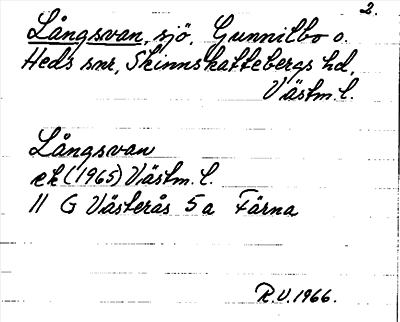 2.
Långsvan, sjö, Gunnilbo o.
Heds snr, Skinnskattebergs hd,
Västm. l.
Långsvan
ek (1965) Västm. l.
11 G Västerås 5a Färna
R.V. 1966.